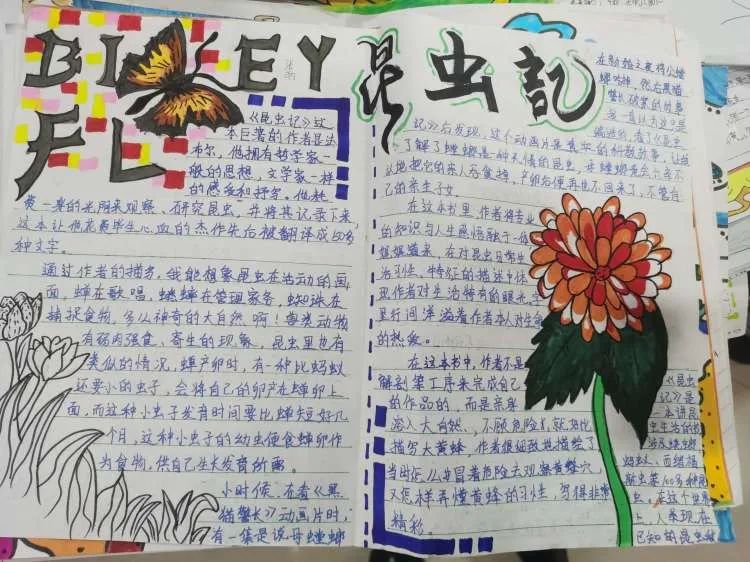 BUTTEY
FL
昆虫記
《昆虫记》这
本巨著的作者是法
布尔，他拥有哲学家一
般的思想，文学家一样
的感受和抒写。他耗
费一辈的光阴来观察、研究昆虫，并将其记录下来，
这本让他花费毕生心血的杰作先后被翻译成50多
种文字。
通过作者的描写，我能想象昆虫在活动的画
面，蝉在歌唱，蟋蟀在管理家务，蜘蛛在
捕捉食物，多么神奇的大自然啊！兽类动物
有弱肉强食、寄生的现象，昆虫里也有
类似的情况，蝉产卵时，有一种比蚂蚁
还要小的虫子，会将自己的卵产在蝉卵上
面，而这种小虫子发育时间要比蝉短好几
个月，这种小虫子的幼虫便食蝉卵作
为食物，供自己生长发育所需。
小时候，在看《黑
猫警长》动画片时，
有一集是说母螳螂
在新婚之夜将公螳
螂吃掉，然后黑猫
警长破案的故事
我一直认为这是
编造的，看了《昆虫
记》后发现，这个动画片是真实的科教故事，让我
了解了螳螂是一种无情的昆虫，母螳螂
地把它的亲人吞食掉，产卵后便再也不回来了，不管自
己的亲生子女
在这本书里，作者将专业
的知识与人生感悟融于一体
娓娓道来，在对昆虫日常生
活习性、特征的描述中体
现作者对生活特有的眼光，字
里行间洋溢着作者本人对生命
的热爱。
在这本书中，作者不是
解剖等工序来完成自己
的作品的，而是亲身
深入大自然、不顾危险，就如比
描写大黄蜂，作者很细致地描绘了
当时怎么样冒着危险去观察黄蜂穴
又怎样弄懂黄蜂的习性，写得非常
精彩。
《昆虫
记》是
一本讲昆
虫生活的书
涉及蜣螂
蚂蚁、西绪福
斯虫等100多种昆
虫。在这个世界
上，人类现在
已知的昆虫